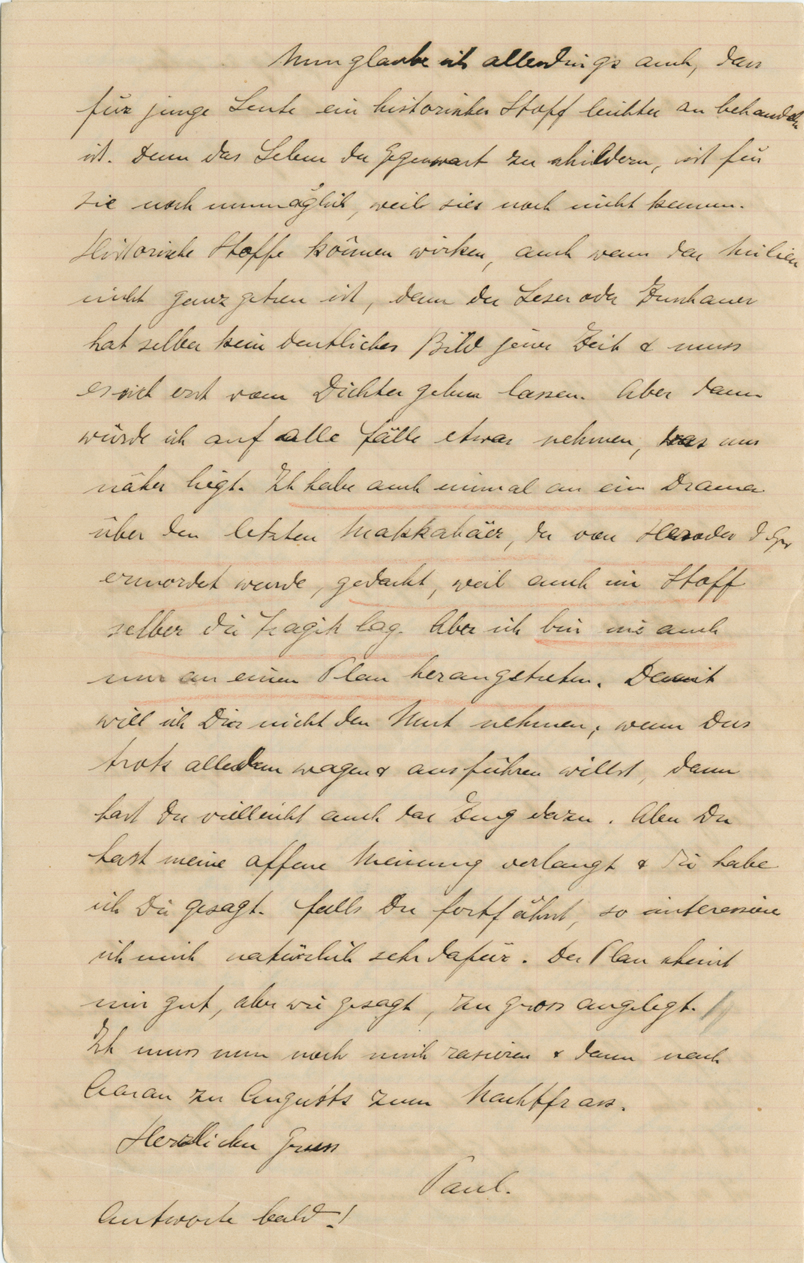 Nun glaube ich allerdings auch, dass
für junge Leute ein historischer Stoff leichter zu behandeln
ist. Denn das Leben der Gegenwart zu schildern, ist für
sie noch unmöglich, weil sies noch nicht kennen.
Historische Stoffe können wirken, auch wenn das Milieu
nicht ganz getreu ist, denn der Leser oder Zuschauer
hat selber kein deutliches Bild jener Zeit & muss
es sich erst vom Dichter geben lassen. Aber dann
würde ich auf alle Fälle etwas nehmen, was uns
näher liegt. Ich habe auch einmal an ein Drama
über den letzten Makkabäer, der von Herodes d. Gr
ermordet wurde, gedacht, weil auch im Stoff
selber die Tragik lag. Aber ich bin nie auch
nur an einen Plan herangetreten. Damit
will ich Dir nicht den Mut nehmen; wenn Dus
trotz alledem wagen & ausführen willst, dann
hast Du vielleicht auch das Zeug dazu. Aber Du
hast meine offene Meinung verlangt & die habe
ich Dir gesagt. Falls Du fortfährst, so interessiere
ich mich natürlich sehr dafür. Der Plan scheint
mir gut, aber wie gesagt, zu gross angelegt.
Ich muss nun noch mich rasieren & dann nach
Aarau zu Augusts zum Nachtfrass.
Herzlichen Gruss
Paul.
Antworte bald!